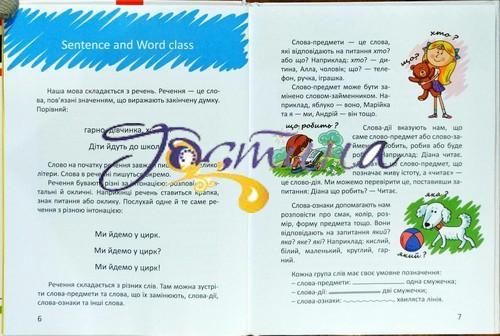 Sentence and Word class
Наша мова складається з речень. Речення — це сло-
ва, пов'язані значенням, що виражають закінчену думку.
Порівняй:
гарно, дівчинка,
Діти йдуть до школи
Слово на початку речення завжди пишеться з великої
літери. Слова в реченні пишуться окремо.
Речення бувають різні за інтонацією: розповідні, пи-
тальні й окличні. Наприкінці речень ставиться крапка,
знак питання або оклику. Послухай одне й те саме речен-
ня з різною інтонацією:
Ми йдемо у цирк.
Ми йдемо у цирк?
Ми йдемо у цирк!
Речення складається з різних слів. Там можна зустрі-
ти слова-предмети та слова, що їх замінюють, слова-дії,
слова-ознаки та інші слова.
6
Слова-предмети — це слова,
які відповідають на питання хто?
або що? Наприклад: хто? — ди-
тина, Алла, чоловік; що? — теле-
фон, ручка, іграшка.
Слово-предмет може бути за-
мінено словом-займенником. На-
приклад, яблуко — воно, Марійка
та я — ми, Андрій — він тощо.
хто?
що?
що робить?
Слова-дії вказують нам, що
саме слово-предмет або слово-за-
робить, робив або буде
робити. Наприклад: Діана читає.
позначає живу істоту, а «читає» —
це слово-дія. Ми можемо перевірити це, поставивши за-
питання: Діана що робить? — Читає.
Слова-ознаки допомагають нам
розповісти про смак, колір, роз-
мір, форму предмета тощо. Вони
відповідають на запитання який?
яка? яке? які? Наприклад: кислий,
білий, маленький, круглий, гар-
ний.
яка?
який?
Кожна група слів має своє умовне позначення:
– слова-предмети: одна смужечка;
– слова-дії: дві смужечки;
– слова-ознаки: хвиляста лінія.
7
Гостина